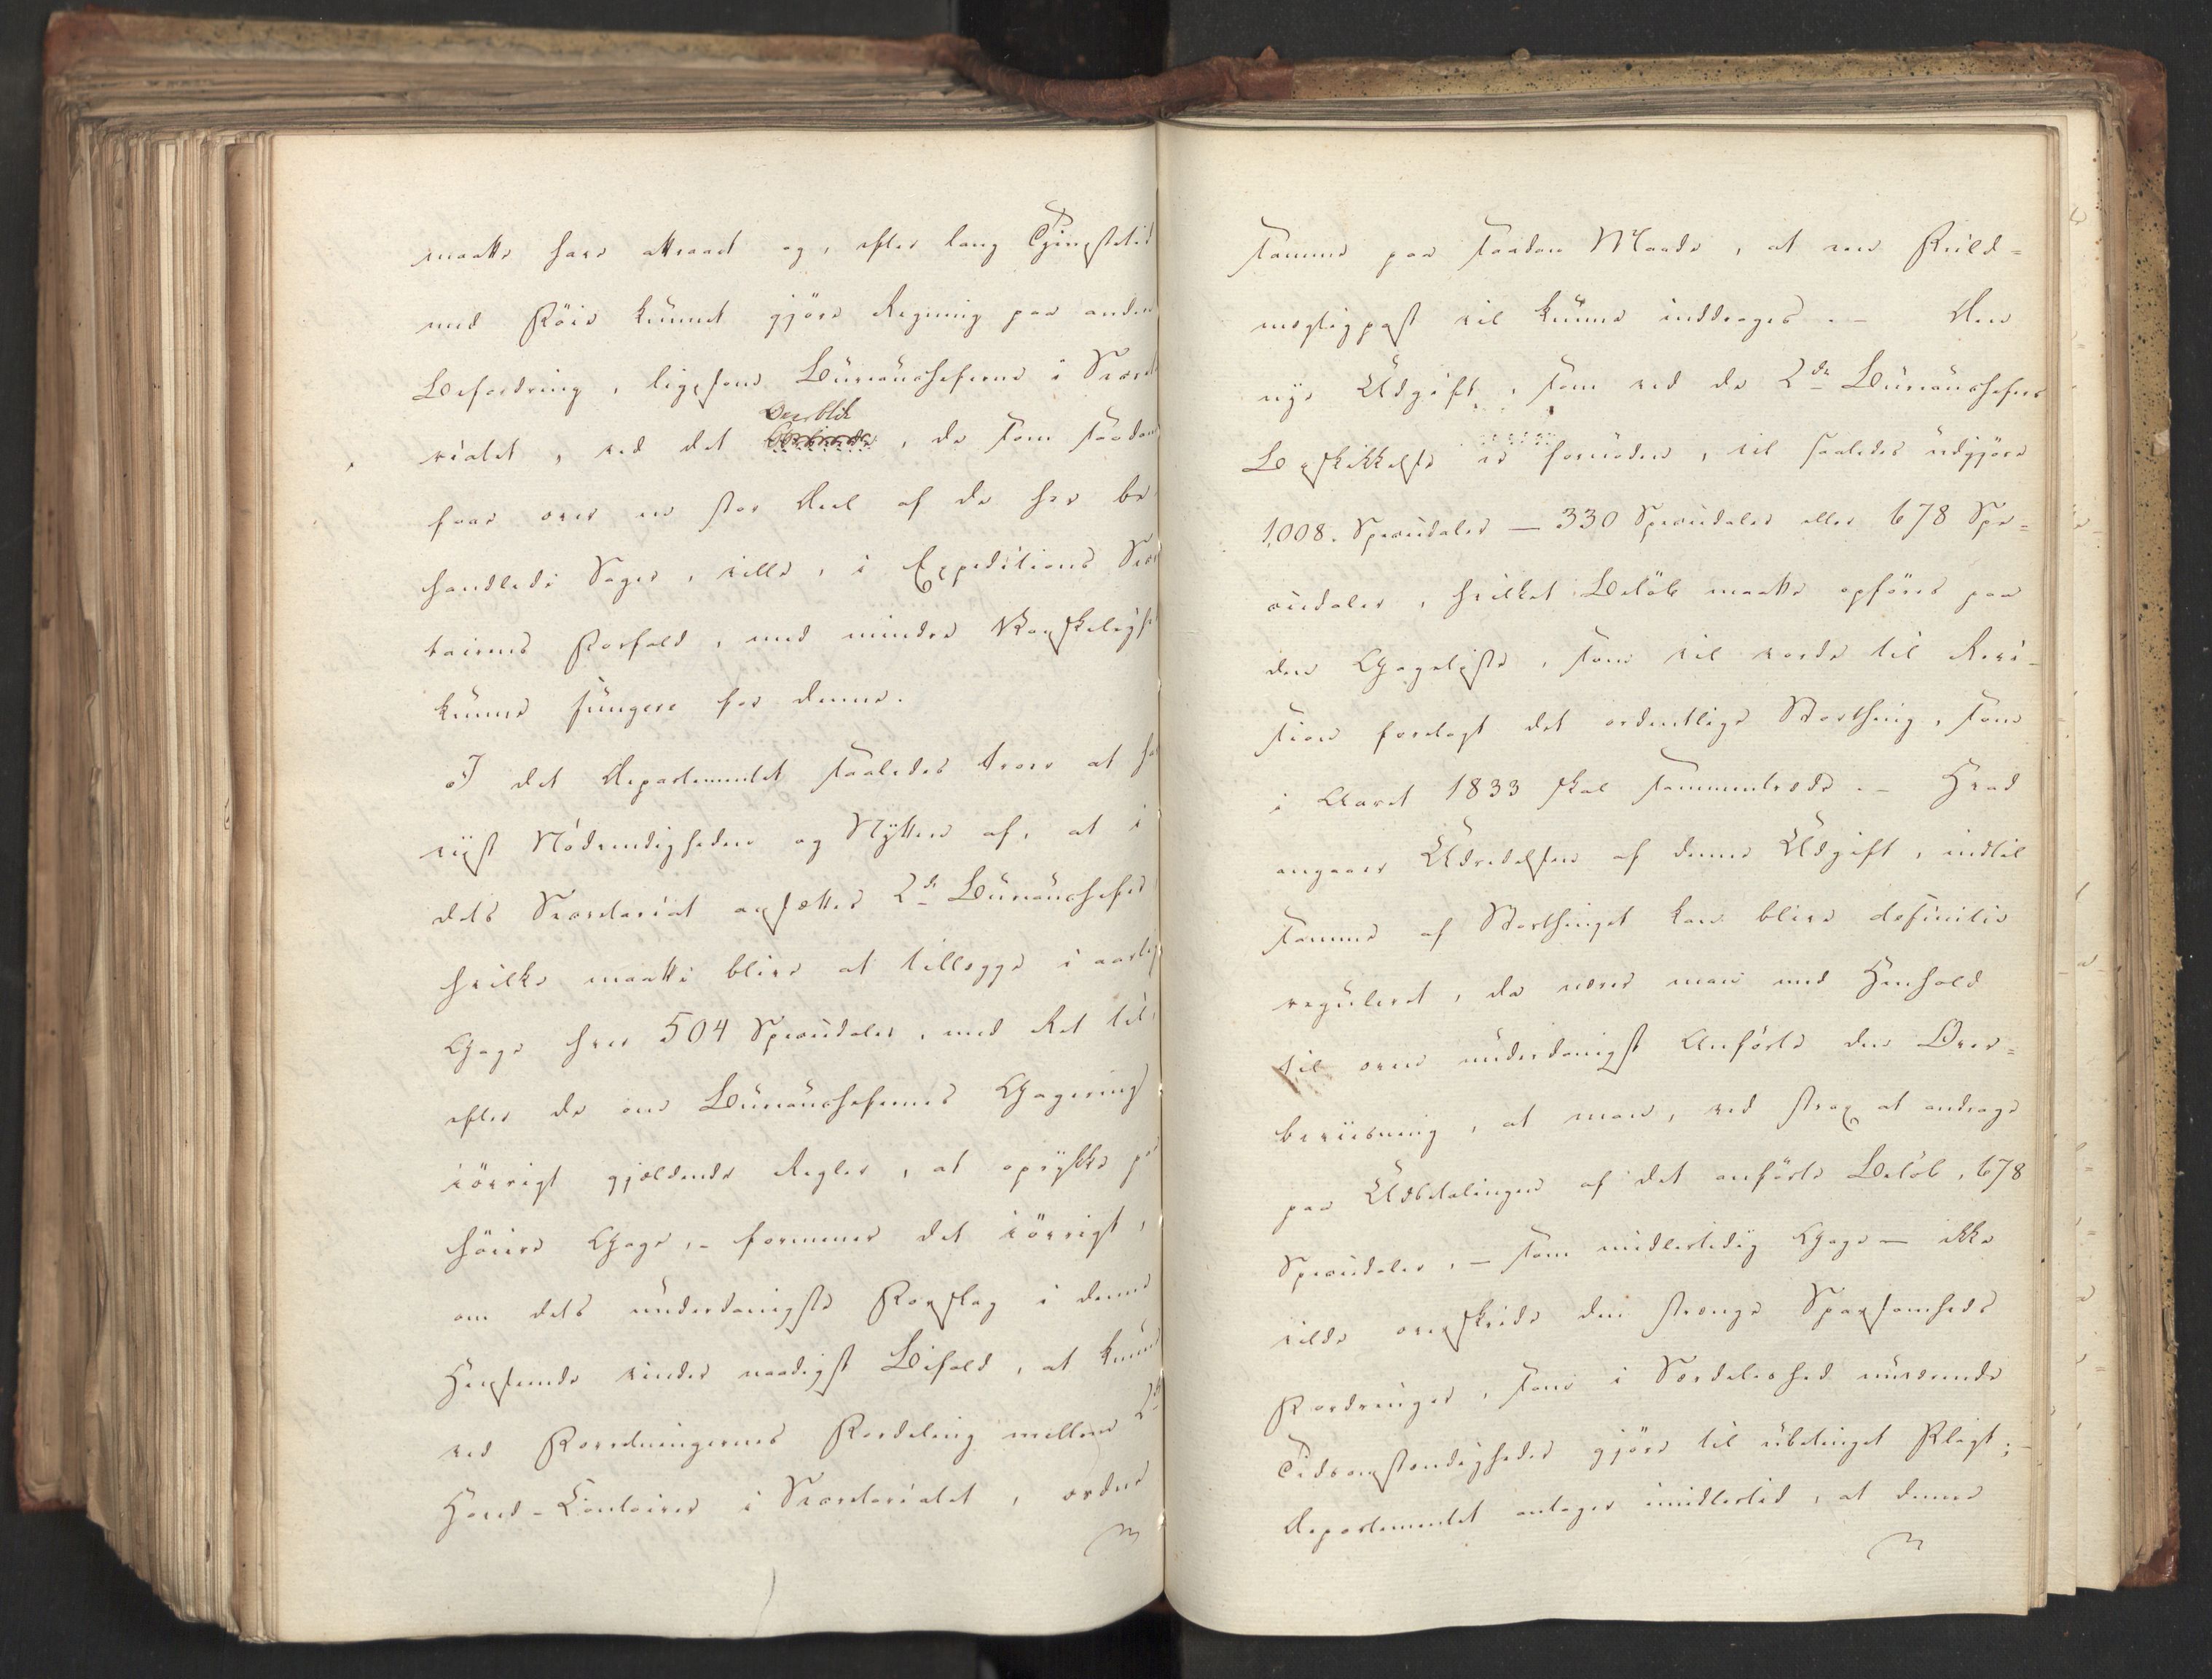 maatte have attraaet og, efter lang Tjenestetid
med Föie kunnet gjöre Regning paa anden
Befordring, ligesom Bureaucheferne i Secreta
riatet, ved det Overblik, de som saadan
faae over en stor Deel af de her be-
handlede Sager, ville, i Expeditions Secre
tairens Forfald, med mindre Vanskelighed
kunne fungere for denne.
I det Departementet saaledes troer at ha
viist Nödvendigheden og Nytten af, at i
dets Secretariat ansættes 2de Bureauchefer
hvilke maatte blive at tillægge i aarlig
Gage hver 504 Speciedaler, med Ret til,
efter de om Bureauchefernes Gagering
iövrigt gjældende Regler, at oprykke paa
höiere Gage, - formener det iövrigt,
om dets underdanigste Forslag i denne
Henseende vinder naadigst Bifald, at kunne
ved Forretningernes Fordeling mellem 2de
Hoved-Contoirer i Secretariatet, ordne
samme paa saadan Maade, at een Fuld-
mægtigpost vil kunne inddrages. - Den
nye Udgift, som ved de 2de Bureauchefers
Beskikkelse er fornöden, vil saaledes udgjöre
1,008. Speciedaler — 330 Speciedaler eller 678 Spe-
ciedaler, hvilket Belöb maatte opföres paa
den Gageliste, som vil vorde til Revi-
sion forelagt det ordentlige Storthing, som
i Aaret 1833 skal sammentræde. - Hvad
angaaer Udredelsen af denne Udgift, indtil
samme af Storthinget kan blive definitiv
reguleret, da nærer man med Henhold
til oven underdanigst Anförte den Over-
beviisning, at man, ved strax at andrage
paa Udbetalingen af det anförte Belöb, 678
Speciedaler, - som midlertidig Gage - ikke
vilde overskride den strenge Sparsomheds
Fordringer, som i Særdeleshed nuværende
Tidsomstændigheder gjöre til ubetinget Pligt; -
Departementet antager imidlertid, at denne